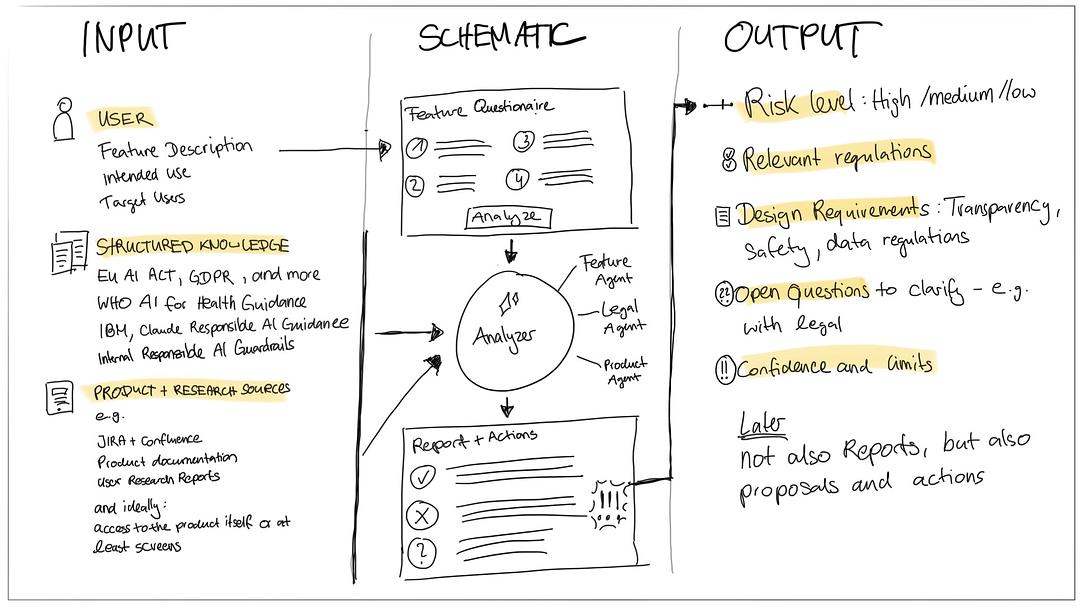 INPUT
USER
Feature Description
Intended Use
Target Users
STRUCTURED KNOWLEDGE
EU AI ACT, GDPR, and more
WHO AI for Health Guidance
IBM, Claude Responsible AI Guidance
Internal Responsible AI Guardrails
PRODUCT + RESEARCH SOURCES
e.g.
JIRA + Confluence
Product documentation
User Research Reports
and ideally:
access to the product itself or at
least screens
SCHEMATIC
Feature Questionaire
1
2
3
4
Analyze
Analyzer
Feature
Agent
Legal
Agent
Product
Agent
Report + Actions
?
!!!
OUTPUT
Risk level: High/medium/low
Relevant regulations
Design Requirements: Transparency,
safety, data regulations
??
Open Questions to clarify – e.g.
with legal
!!
Confidence and limits
Later
not also Reports, but also
proposals and actions